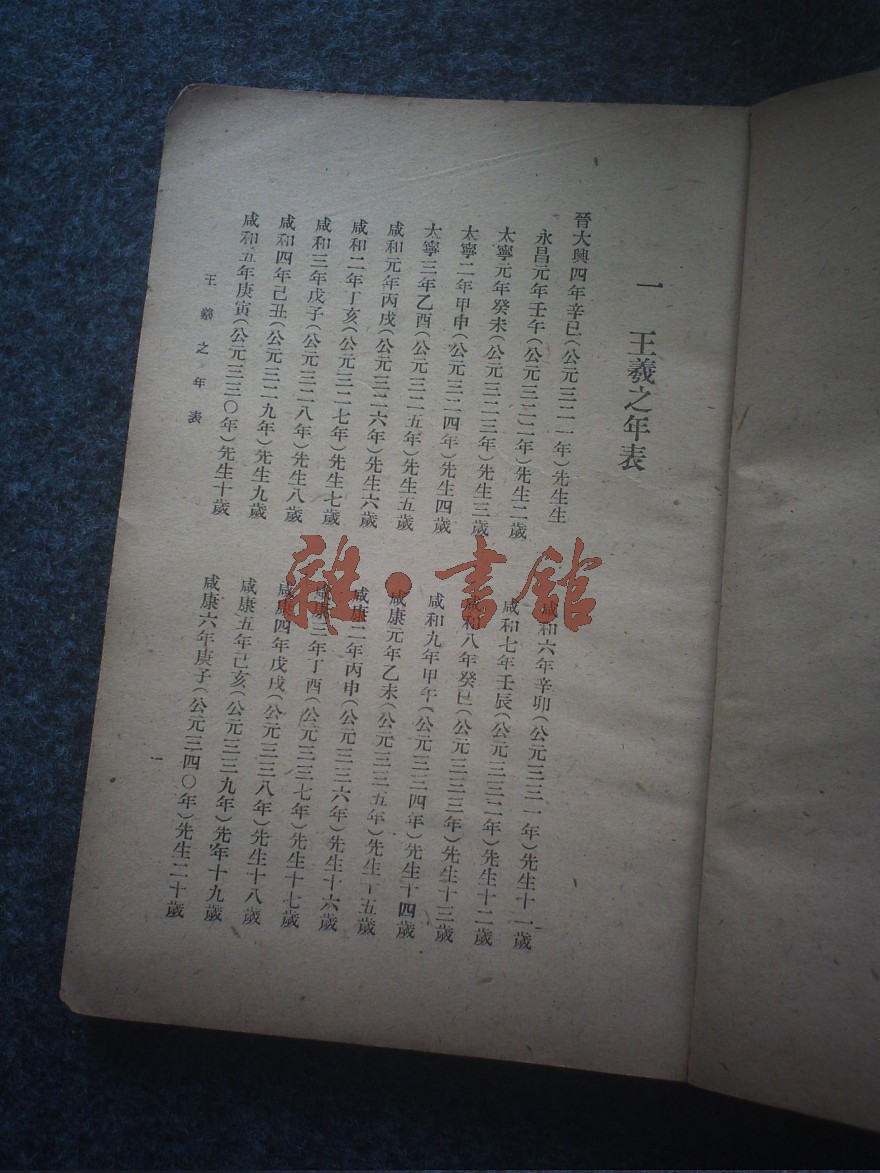 一　王羲之年表
晉大興四年辛巳(公元三二一年)先生生
永昌元年壬午(公元三二二年)先生二歲
太寧元年癸未(公元三二三年)先生三歲
太寧二年甲申(公元三二四年)先生四歲
太寧三年乙酉(公元三二五年)先生五歲
咸和元年丙戌(公元三二六年)先生六歲
咸和二年丁亥(公元三二七年)先生七歲
咸和三年戊子(公元三二八年)先生八歲
咸和四年己丑(公元三二九年)先生九歲
咸和五年庚寅(公元三三〇年)先生十歲
咸和六年辛卯(公元三三一年)先生十一歲
咸和七年壬辰(公元三三二年)先生十二歲
咸和八年癸巳(公元三三三年)先生十三歲
咸和九年甲午(公元三三四年)先生十四歲
咸康元年乙未(公元三三五年)先生十五歲
咸康二年丙申(公元三三六年)先生十六歲
咸康三年丁酉(公元三三七年)先生十七歲
咸康四年戊戌(公元三三八年)先生十八歲
咸康五年己亥(公元三三九年)先年十九歲
咸康六年庚子(公元三四〇年)先生二十歲
王羲之年表
雜·書館